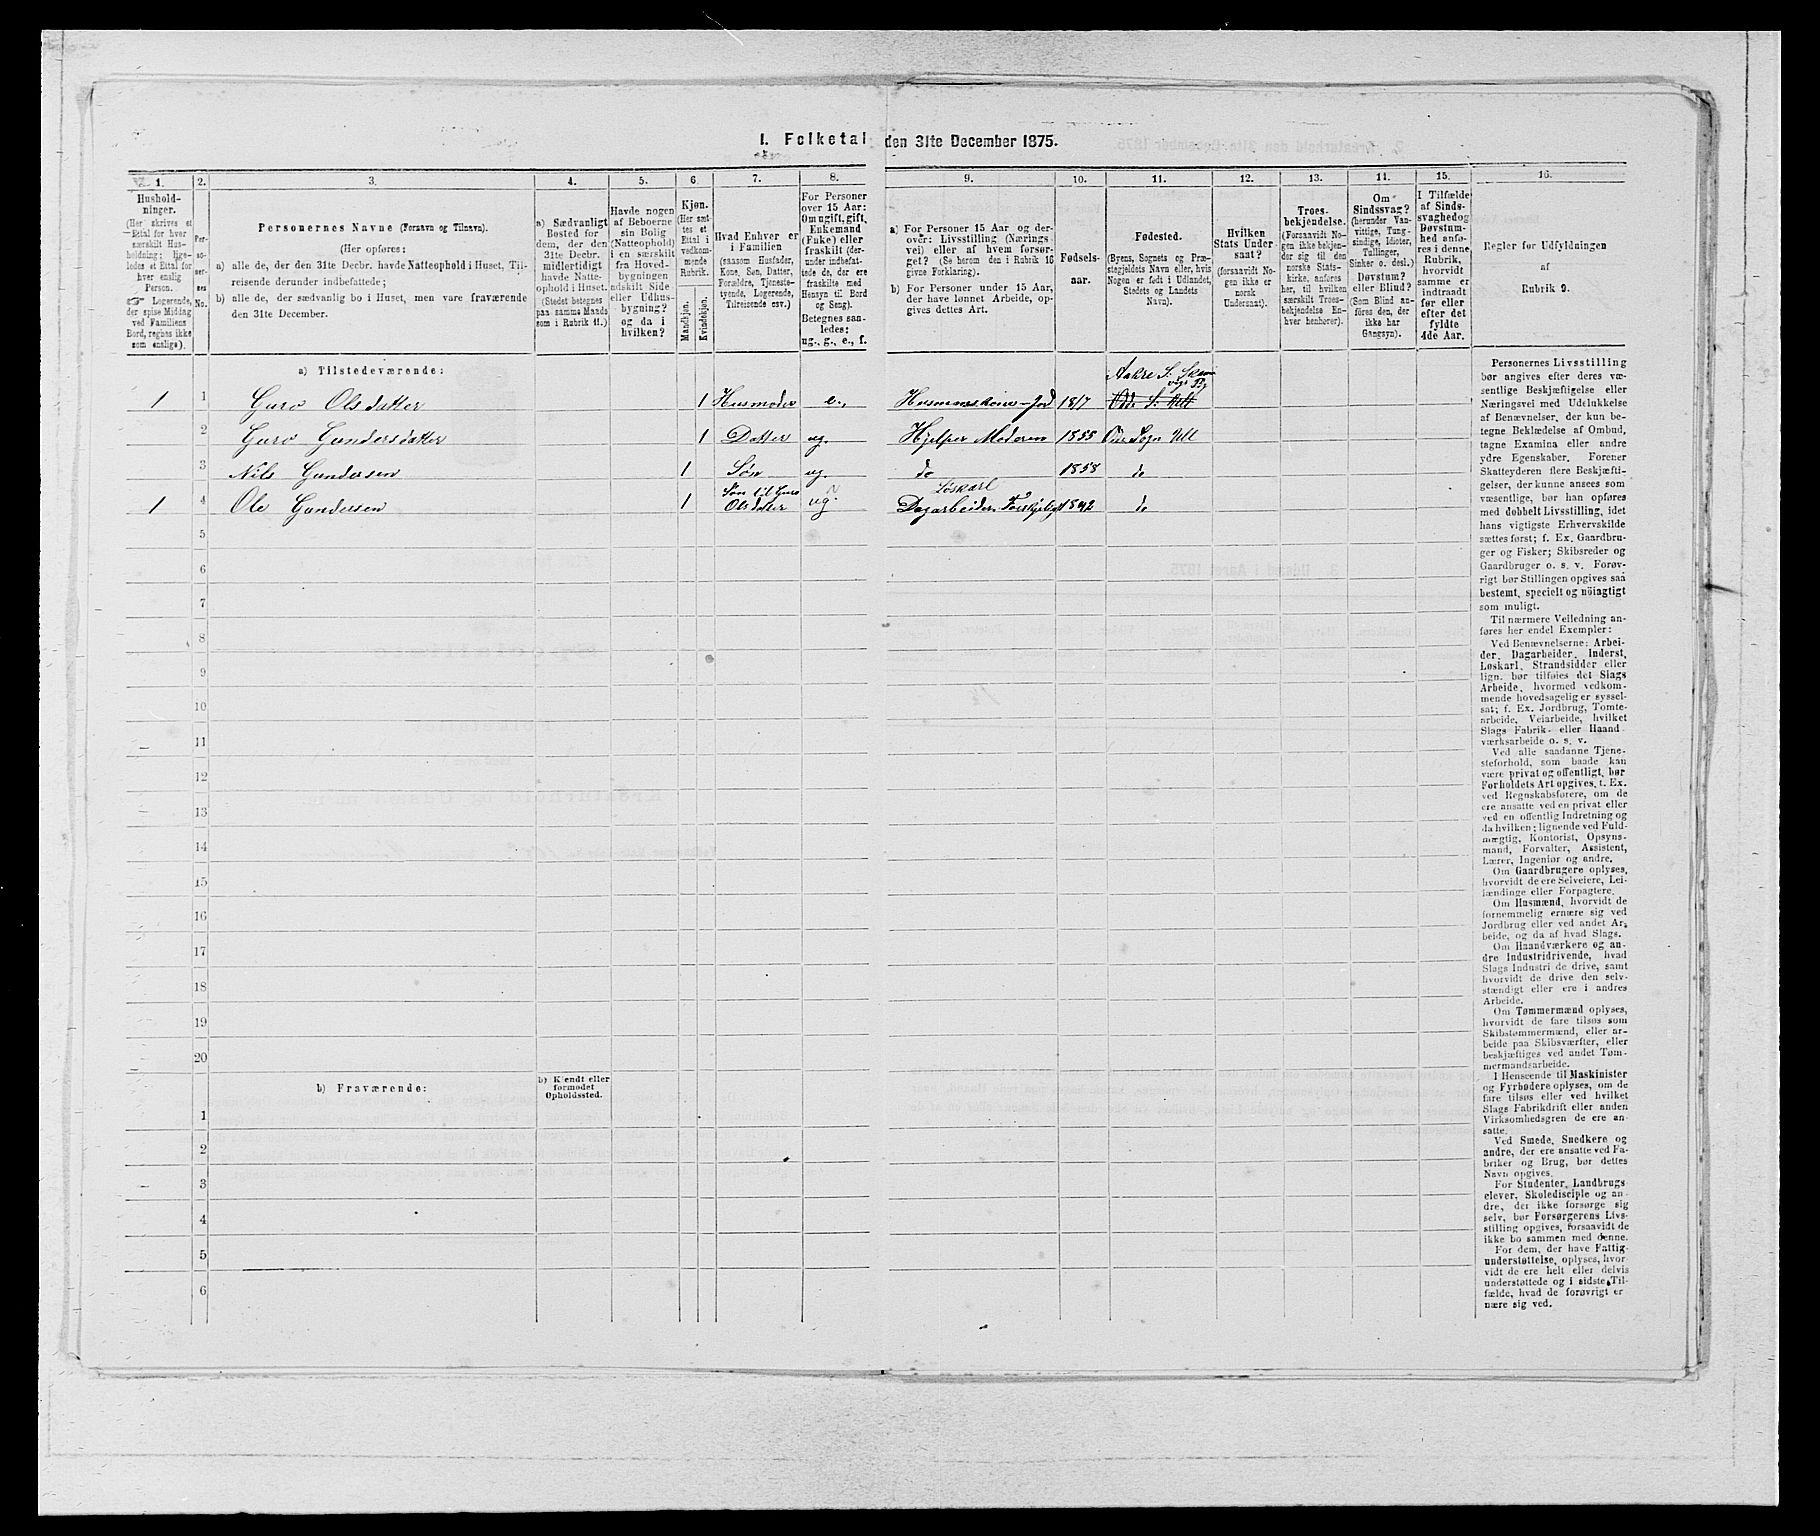 I. Folketal den 31te December 1875.
1. 2. 3. 4. 5. 6 7. 8. 9. 10. 11. 12. 13. 14. 15. 16.
Hushold-
ninger.
(Her skrives et
Ettal for hver
særskilt Hus-
holdning; lige-
ledes et Ettal for
hver enslig
Person.
Logerende,
der spise Middag
ved Familiens
Bord, regnes ikke
som enslige).
Per-
so-
ner-
nes
No.
Personernes Navne (Fornavn og Tilnavn).
(Her opføres:
a) alle de, der den 31te Decbr. havde Natteophold i Huset, Til-
reisende derunder indbefattede;
b) alle de, der sædvanlig bo i Huset, men vare fraværende
den 31te December.
a) Sædvanligt
Bosted for
dem, der den
31te Decbr.
midlertidigt
havde Natte-
ophold i Huset.
(Stedet betegnes
paa samme Maade
som i Rubrik 11.)
Havde nogen
af Beboerne
sin Bolig
(Natteophold)
i en særskilt
fra Hoved-
bygningen
adskilt Side
eller Udhus-
bygning?
og da i
hvilken?
Kjøn.
(Her sæt-
tes et
Ettal i
vedkom-
mende
Rubrik.
Mandkjøn.
Kvindekjøn.
Hvad Enhver er
i Familien
(saasom Husfader,
Kone, Søn, Datter,
Forældre, Tjeneste-
tyende, Logerende,
Tilreisende osv.)
For Personer
over 15 Aar:
Om ugift, gift,
Enkemand
(Enke) eller
fraskilt (der-
under indbefat-
tede de, der ere
fraskilte med
Hensyn til Bord
og Seng).
Betegnes saa-
ledes:
ug., g., e., f.
a) For Personer 15 Aar og der-
over: Livsstilling (Nærings
vei) eller af hvem forsør-
get? (Se herom den i Rubrik 16
givne Forklaring).
b) For Personer under 15 Aar,
der have lønnet Arbeide, op-
gives dettes Art.
Fødsels-
aar.
Fødested.
(Byens, Sognets og Præ-
stegjeldets Navn eller, hvis
Nogen er født i Udlandet,
Stedets og Landets
Navn).
Hvilken
Stats Under-
saat?
(forsaavidt No-
gen ikke er
norsk
Undersaat).
Troes-
bekjendelse.
(Forsaavidt No-
gen ikke bekjen-
der sig til den
norske Stats-
kirke, anføres
her, til hvilken
særskilt Troes-
bekjendelse En-
hver henhører).
Om
Sindssvag?
(herunder Van-
vittige, Tung-
sindige, Idioter,
Tullinger,
Sinker o. desl.)
Døvstum?
eller Blind?
(Som Blind an-
føres den, der
ikke har
Gangsyn).
I Tilfælde
af Sinds-
svaghed og
Døvstum-
hed anfø-
res i denne
Rubrik,
hvorvidt
samme er
indtraadt
før eller
efter det
fyldte
4de Aar.
Regler før Udfyldningen
af
Rubrik 9.
a) Tilstedeværende:
Aakre S. Skaane-
1 1 Guro Olsdatter 1 Husmoder e., 1817
2 Guro Gundersdatter 1 Datter ug. Hjelper Moderen 1855
3 Nils Gundersen 1 Søn ug. do 1858 do
Søn til Guro Løskarl
1 4 Ole Gundersen 1 Olsdatter ug. Dagarbeider, 1842 do
5
6
7
8
9
10
11
12
13
14
15
16
17
18
19
20
b) Fraværende:
b) Kjendt eller
formodet
Opholdssted.
1
2
3
4
5
6
Personernes Livsstilling
bør angives efter deres væ-
sentlige Beskjæftigelse eller
Næringsvei med Udelukkelse
af Benævnelser, der kun be-
tegne Beklædelse af Ombud,
tagne Examina eller andre
ydre Egenskaber. Forener
Skatteyderen flere Beskjæfti-
gelser, der kunne ansees som
væsentlige, bør han opføres
med dobbelt Livsstilling, idet
hans vigtigste Erhvervskilde
sættes først; f. Ex. Gaardbru-
ger og Fisker; Skibsreder og
Gaardbruger o. s. v. Forøv-
rigt bør Stillingen opgives saa
bestemt, specielt og nöiagtigt
som muligt.
Til nærmere Veiledning an-
føres her endel Exempler:
Ved Benævnelserne: Arbei-
der, Dagarbeider, Inderst,
Løskarl, Strandsidder eller
lign. bør tilføies det Slags
Arbeide, hvormed vedkom-
mende hovedsagelig er syssel-
sat; f. Ex. Jordbrug, Tomte-
arbeide, Veiarbeide, hvilket
Slags Fabrik- eller Haand
værksarbeide o. s. v.
Ved alle saadanne Tjene-
steforhold, som baade kan
være privat og offentligt, bør
Forholdets Art opgives, t. Ex.
ved Regnskabsførere, om de
ere ansatte ved en privat eller
ved en offentlig Indretning og
da hvilken; lignende ved Fuld-
mægtig, Kontorist, Opsyns-
mand, Forvalter, Assistent,
Lærer, Ingeniør og andre.
Om Gaardbrugere oplyses,
hvorvidt de ere Selveiere, Lei-
lændinge eller Forpagtere.
Om Husmænd, hvorvidt de
fornemmelig ernære sig ved
Jordbrug eller ved andet Ar-
beide, og da af hvad Slags.
Om Haandværkere og an-
dre Industridrivende, hvad
Slags Industri de drive, samt
hvorvidt de drive den selv-
stændigt eller ere i andres
Arbeide.
Om Tømmermænd oplyses,
hvorvidt de fare tilsøs som
Skibstømmermænd, eller ar-
beide paa Skibsværfter, eller
beskjæftiges ved andet Tøm-
mermandsarbeide.
I Henseende til Maskinister
og Fyrbødere oplyses, om de
fare tilsøs eller ved hvilket
Slags Fabrikdrift eller anden
Virksomhedsgren de ere an-
satte.
Ved Smede, Snedkere og
andre, der ere ansatte ved Fa-
briker og Brug, bør dettes
Navn opgives.
For Studenter, Landbrugs
elever, Skoledisciple og an-
dre, der ikke forsørge sig
selv, bør Forsørgerens Livs-
stilling opgives, forsaavidt de
ikke bo sammen med denne.
For dem, der have Fattig-
understøttelse, oplyses, hvor-
vidt de ere helt eller delvis
understøttede og i sidste Til-
fælde, hvad de forøvrigt er
nære sig ved.